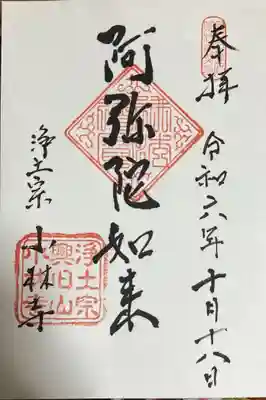 奉拝
令和六年十月十八日
阿弥陀如来
浄土宗
小林寺
浄土宗